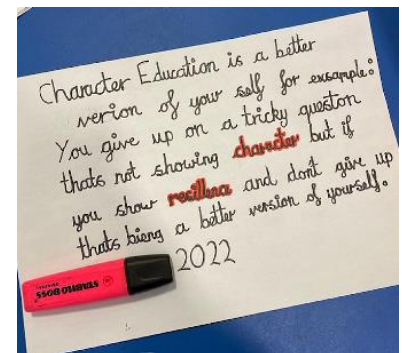 Character Education is a better
verion of your self for example:
You give up on a tricky queston
thats not showing character but if
you show resillence and dont give up
thats bieng a better version of yourself.
2022
STABILO BOSS